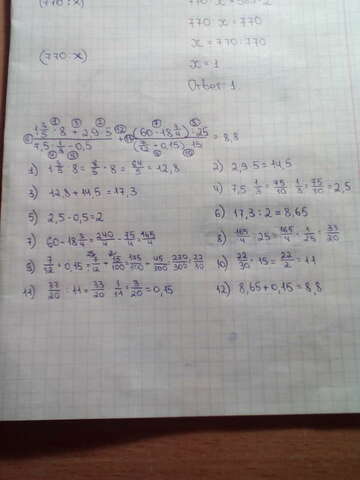 (770:x)
770·x=385·2
770·x=770
(770:x)
x=770:770
x=1
Ответ: 1
(1 3/5 · 8 + 2,9·5)/(7,5·1/3 - 0,5) + ((60-18 3/4):25)/((7/12+0,15)·15) = 8,8
1) 1 3/5 · 8 = 8/5 · 8 = 64/5 = 12,8
2) 2,9·5=14,5
3) 12,8+14,5=17,3
4) 7,5·1/3=75/10·1/3=75/10=2,5
5) 2,5-0,5=2
6) 17,3:2=8,65
7) 60-18 3/4=240/4-75/4=165/4
8) 165/4:25=165/4·1/25=33/20
9) 7/12+0,15=7/12+15/100=175/300+45/300=220/300=22/30
10) 22/30·15=22/2=11
11) 33/20:11=33/20·1/11=3/20=0,15
12) 8,65+0,15=8,8